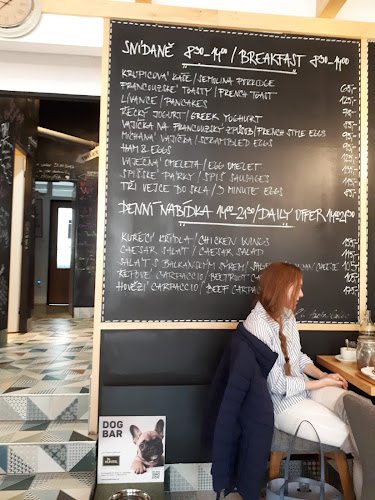 SNÍDANĚ 8³⁰-11⁰⁰ / BREAKFAST 8³⁰-11⁰⁰
KRUPICOVÁ KAŠE / SEMOLINA PORRIDGE 65,-
FRANCOUZSKÉ TOASTY / FRENCH TOAST 125,-
LÍVANCE / PANCAKES
ŘECKÝ JOGURT / GREEK YOGHURT
VAJÍČKA NA FRANCOUZSKÝ ZPŮSOB / FRENCH STYLE EGGS
MÍCHANÁ VAJÍČKA / SCRAMBLED EGGS
HAM & EGGS
VAJEČNÁ OMELETA / EGG OMELET
SPIŠSKÉ PÁRKY / SPIŠ SAUSAGES
TŘI VEJCE DO SKLA / 3 MINUTE EGGS
DENNÍ NABÍDKA 14⁰⁰-21³⁰ / DAILY OFFER 14⁰⁰-21³⁰
KUŘECÍ KŘÍDLA / CHICKEN WINGS
CAESAR SALÁT / CAESAR SALAD
SALÁT S BALKÁNSKÝM SÝREM / CHEESE
ŘEPOVÉ CARPACCIO / BEETROOT
HOVĚZÍ CARPACCIO / BEEF
DOG
BAR